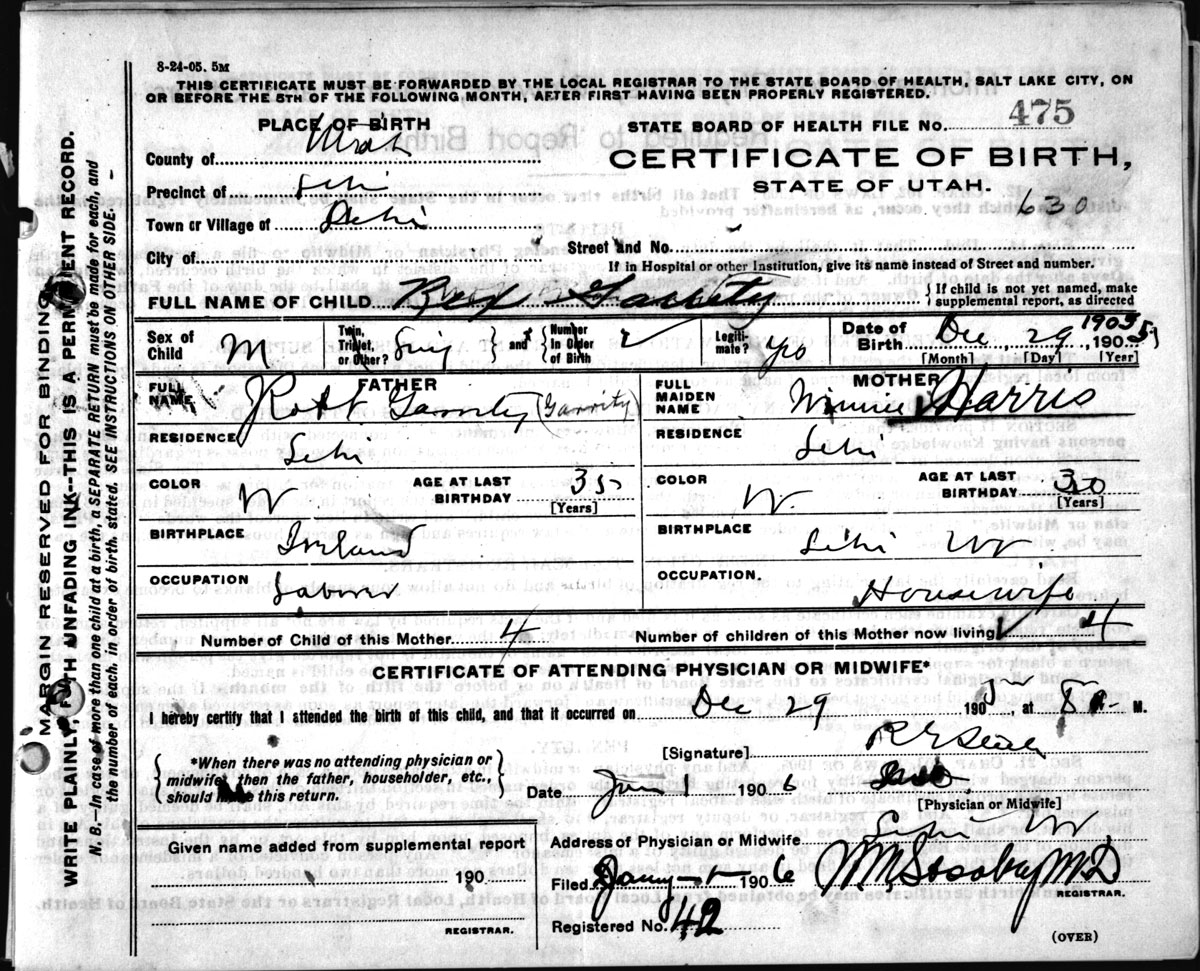 8-24-05. 5M
THIS CERTIFICATE MUST BE FORWARDED BY THE LOCAL REGISTRAR TO THE STATE BOARD OF HEALTH, SALT LAKE CITY, ON
OR BEFORE THE 5TH OF THE FOLLOWING MONTH, AFTER FIRST HAVING BEEN PROPERLY REGISTERED.
PLACE OF BIRTH
STATE BOARD OF HEALTH FILE No. 475
County of Utah
CERTIFICATE OF BIRTH,
Precinct of Lehi
STATE OF UTAH.
630
Town or Village of Lehi
City of
Street and No.
If in Hospital or other Institution, give its name instead of Street and number.
FULL NAME OF CHILD Rex
{ If child is not yet named, make
supplemental report, as directed
Sex of Child M
Twin, Triplet, or Other? Sing } and { Number in Order of Birth
Legitimate? yes
Date of Birth Dec 29 1905
[Month] [Day] [Year]
FATHER
FULL NAME Robt Garrity (Garrity)
RESIDENCE Lehi
COLOR W
AGE AT LAST BIRTHDAY 35
[Years]
BIRTHPLACE Ireland
OCCUPATION Labor
MOTHER
FULL MAIDEN NAME Winnie Harris
RESIDENCE Lehi
COLOR W.
AGE AT LAST BIRTHDAY 30
[Years]
BIRTHPLACE Lehi Ut
OCCUPATION. Housewife
Number of Child of this Mother 4
Number of children of this Mother now living 4
CERTIFICATE OF ATTENDING PHYSICIAN OR MIDWIFE*
I hereby certify that I attended the birth of this child, and that it occurred on Dec 29 1905, at 8 M.
{ *When there was no attending physician or
midwife, then the father, householder, etc.,
should make this return. }
[Signature]
Date 1906
[Physician or Midwife]
Given name added from supplemental report
190
REGISTRAR.
Address of Physician or Midwife Lehi Ut
Filed 1906
M.D
REGISTRAR.
Registered No. 42
(OVER)
MARGIN RESERVED FOR BINDING
WRITE PLAINLY, WITH UNFADING INK--THIS IS A PERMANENT RECORD.
N. B.—In case of more than one child at a birth, a SEPARATE RETURN must be made for each, and
the number of each, in order of birth, stated. SEE INSTRUCTIONS ON OTHER SIDE.